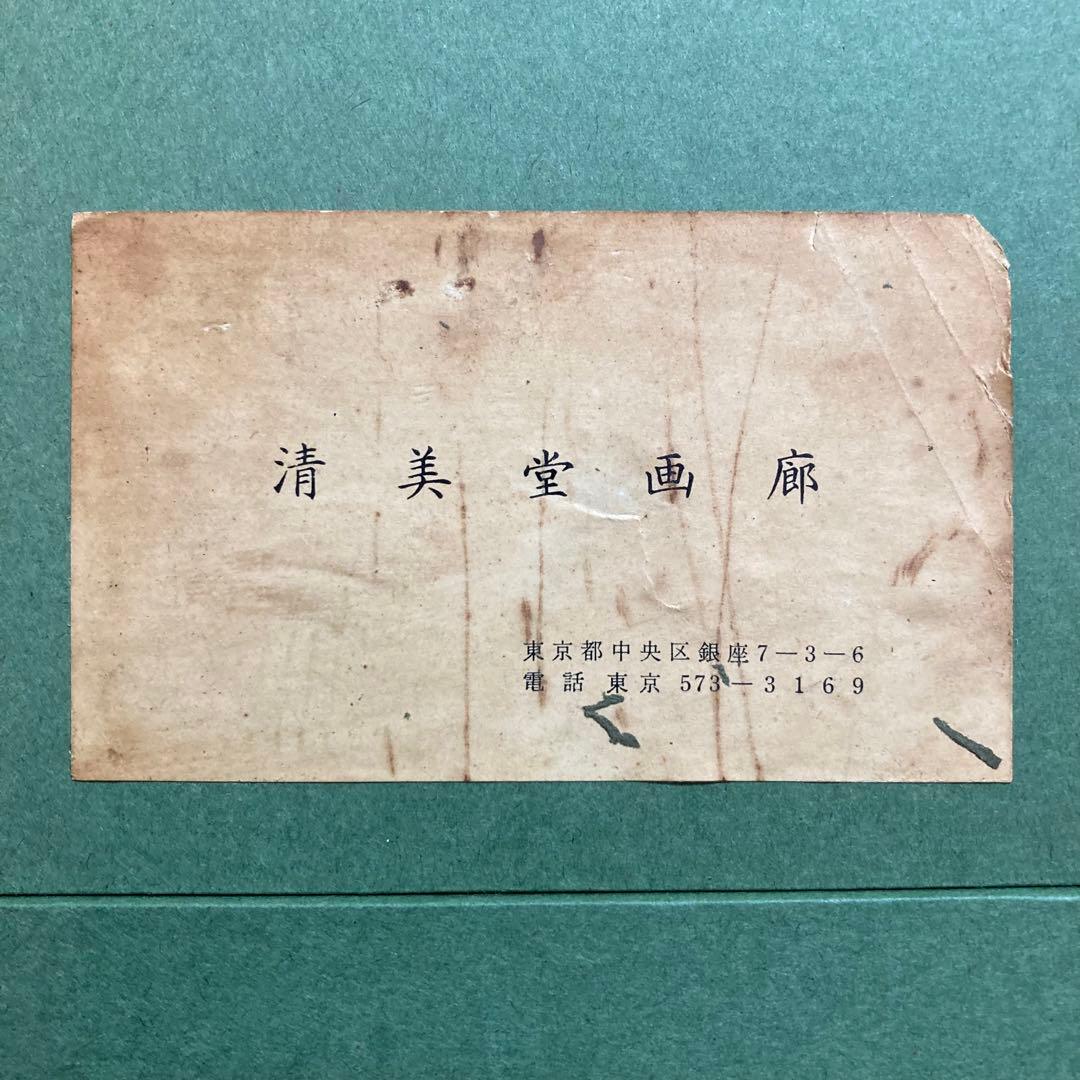 清美堂画廊
東京都中央区銀座7-3-6
電話 東京 573-3169